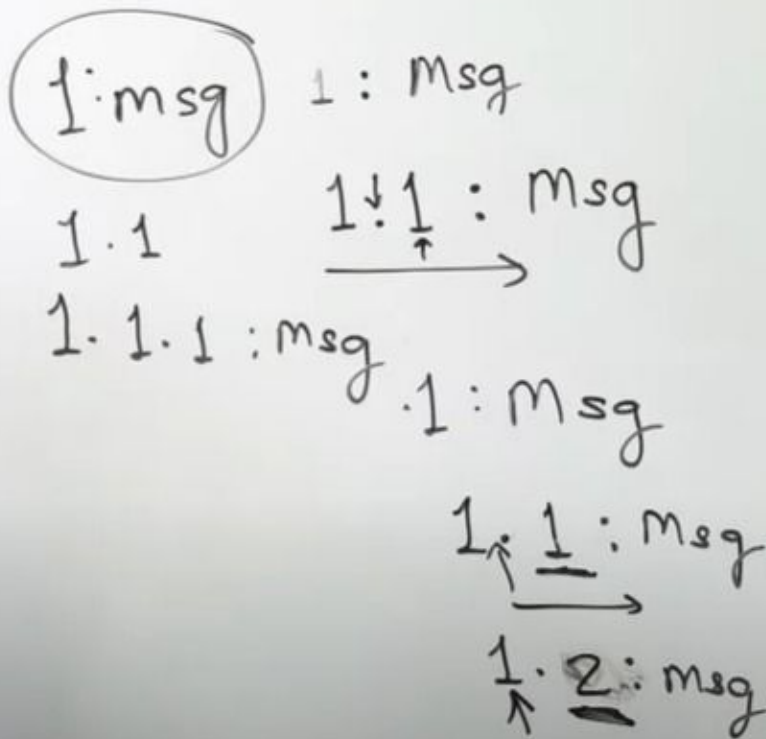 1:msg 1 : Msg
1.1 : Msg
1.1
1.1.1 : msg
.1 : Msg
1.1 : Msg
1.2 : msg